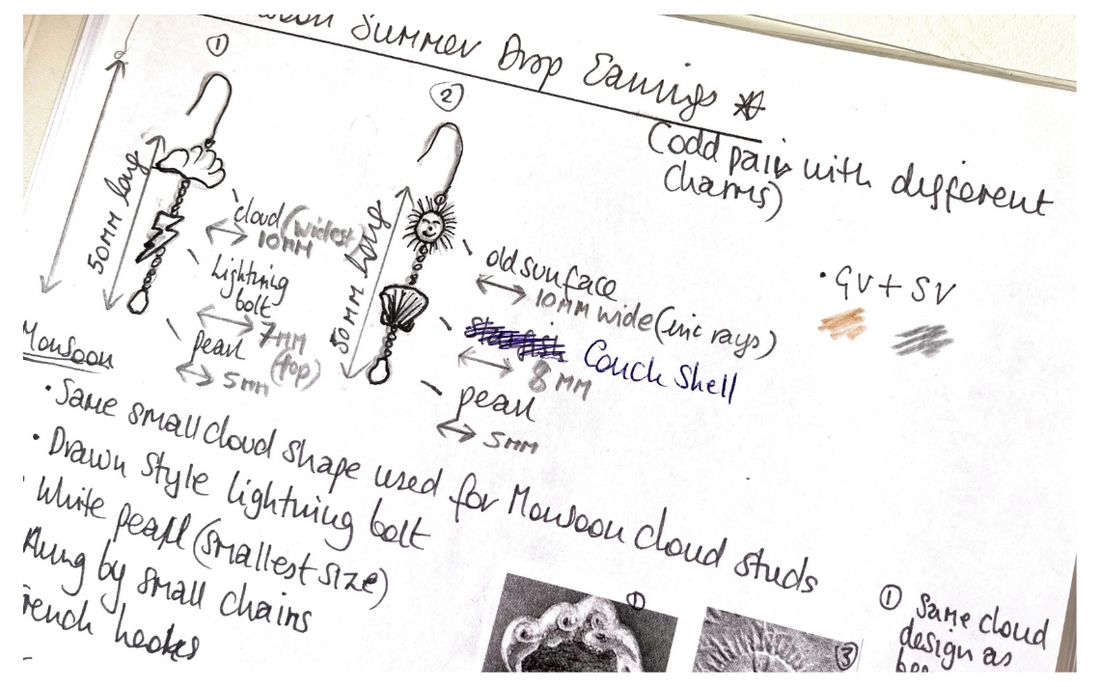 Summer Drop Earrings
(odd pair with different
charms)
①
②
50MM long
cloud (widest)
10MM
Lightning
bolt
7MM
(top)
pearl
5MM
50MM long
old sun face
10MM wide (inc rays)
Couch Shell
8MM
pearl
5MM
• GV + SV
Monsoon
• Same small cloud shape used for Monsoon cloud studs
• Drawn style lightning bolt
• White pearl (smallest size)
Hung by small chains
French hooks
①
③
① Same cloud
design as